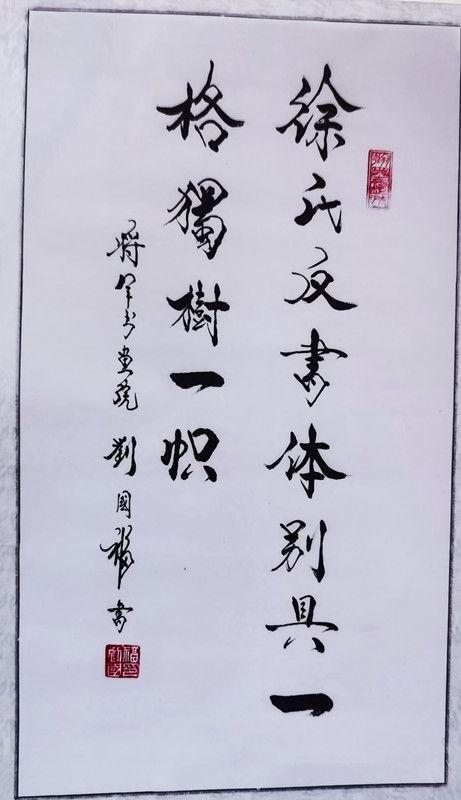 徐氏反書体别具一
格獨樹一帜
将军书画院 劉國福書